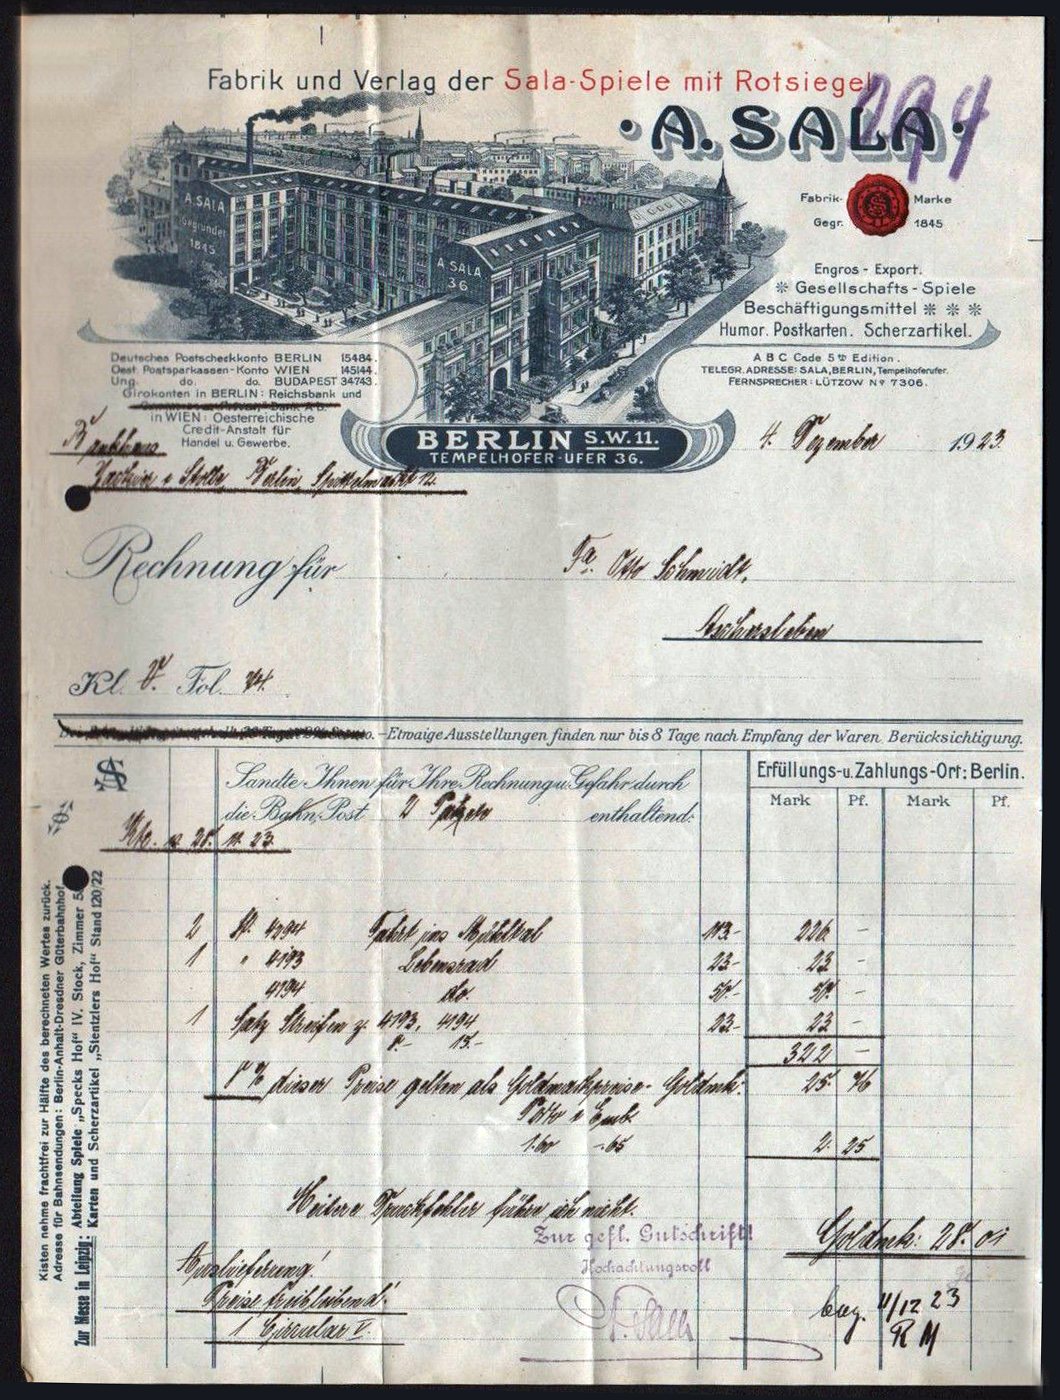 Fabrik und Verlag der Sala-Spiele mit Rotsiegel
294
A. SALA
A. SALA
Gegründet
1845
A. SALA
36
Fabrik- Marke
Gegr. 1845
Engros - Export.
Gesellschafts-Spiele
Beschäftigungsmittel
Humor. Postkarten. Scherzartikel.
Deutsches Postscheckkonto BERLIN 15484.
Oest. Postsparkassen-Konto WIEN 145144.
Ung. do. do. BUDAPEST 34743.
Girokonten in BERLIN: Reichsbank und
in WIEN: Oesterreichische
Credit-Anstalt für
Handel u. Gewerbe.
A B C Code 5th Edition.
TELEGR. ADRESSE: SALA, BERLIN, Tempelhoferufer.
FERNSPRECHER: LÜTZOW No 7306.
BERLIN S.W. 11.
TEMPELHOFER-UFER 36.
4. Dezember 1923
Bankhaus
Berlin, Spittelmarkt 12.
Rechnung für
Fa. Otto Schmidt,
Aschersleben
Kl. V. Fol.
Etwaige Ausstellungen finden nur bis 8 Tage nach Empfang der Waren Berücksichtigung.
Sandte Ihnen für Ihre Rechnung u. Gefahr durch
die Bahn, Post 2 Pakete enthaltend:
Erfüllungs- u. Zahlungs-Ort: Berlin.
Mark Pf. Mark Pf.
28. 11. 23.
2 4294 Fahrt ins 113.- 226 -
1 " 4193 Lebensrad 23.- 23 -
4194 do. 50.- 50. -
1 Satz Streifen z. 4193, 4194 23.- 23 -
8.- 15.-
322 -
8% dieser Preise gelten als Goldmarkpreise - Goldmk: 25 76
Porto & Emb.
1.60 -.65 2. 25
Weitere Druckfehler führe ich nicht.
Goldmk: 28. 01
Zur gefl. Gutschrift!
Hochachtungsvoll
A. Sala
Auslieferung!
Preise freibleibend!
1 Circular V.
bez. 11/12 23
R M
Kisten nehme frachtfrei zur Hälfte des berechneten Wertes zurück.
Adresse für Bahnsendungen: Berlin-Anhalt-Dresdner Güterbahnhof
Zur Messe in Leipzig: Abteilung Spiele „Specks Hof" IV. Stock, Zimmer
Karten und Scherzartikel „Stentzlers Hof" Stand 120/22